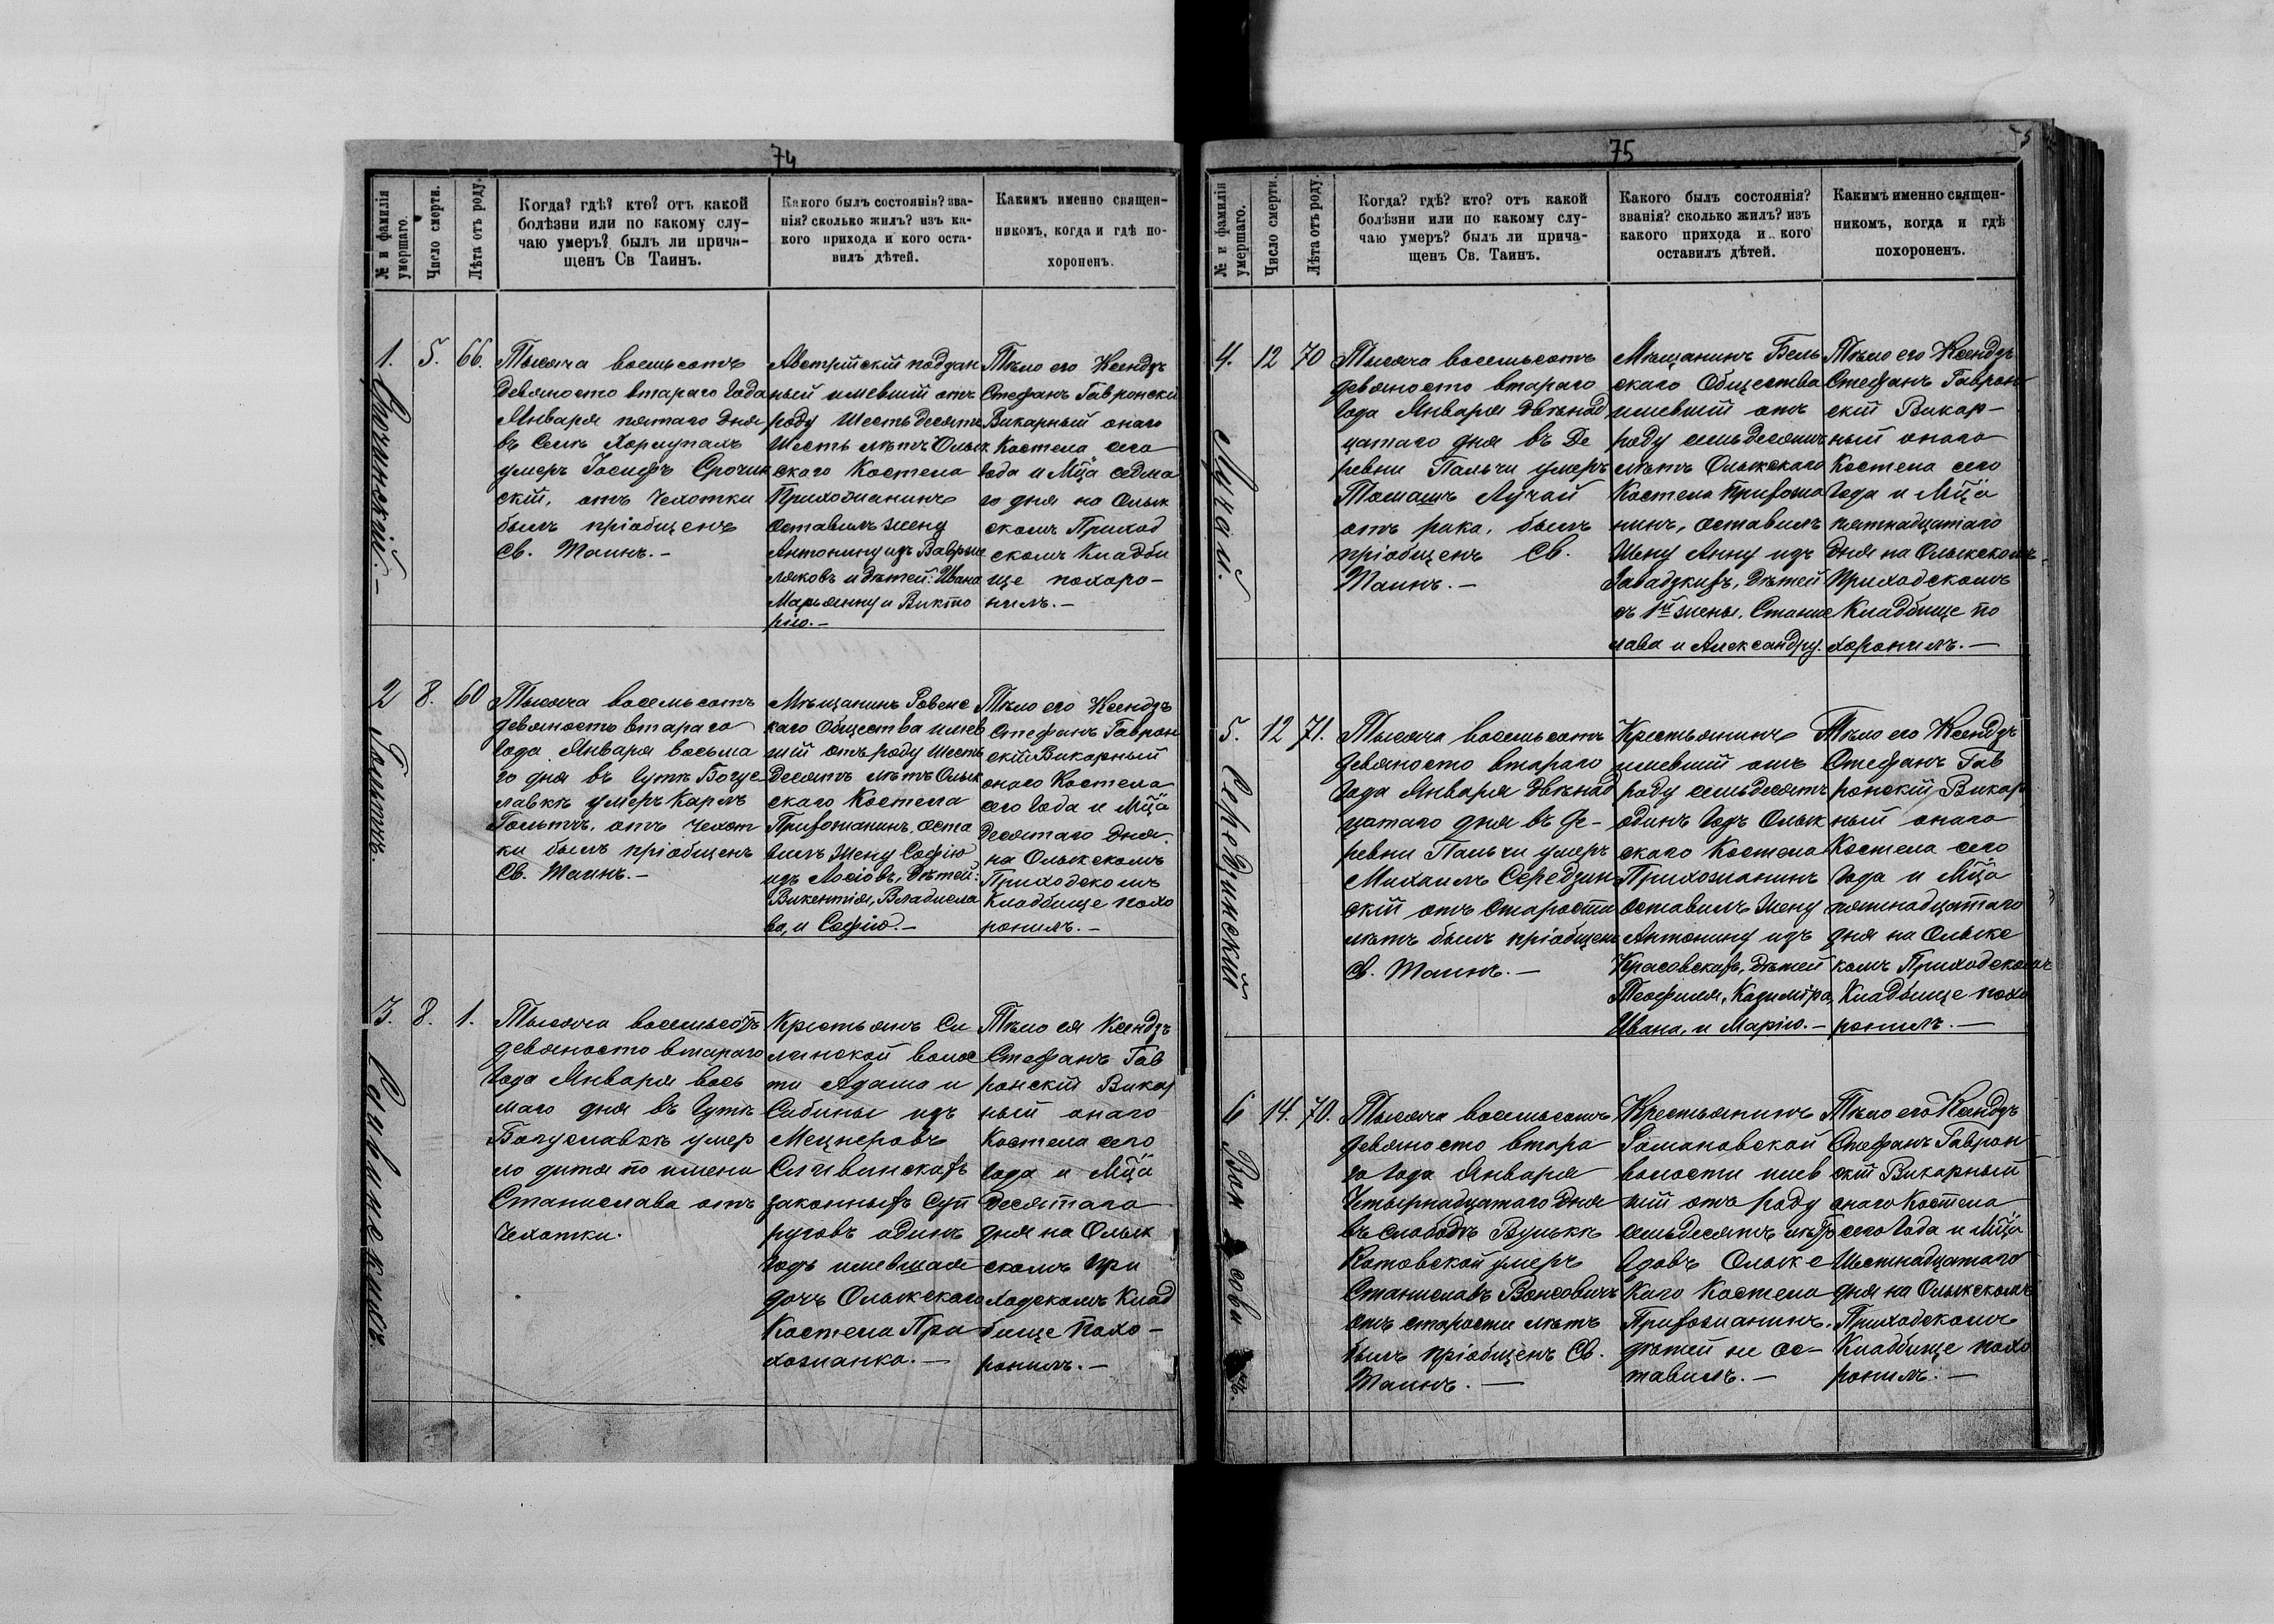 74
№ и фамилія
умершаго.
Число смерти.
Лѣта отъ роду.
Когда? гдѣ? кто? отъ какой
болѣзни или по какому слу-
чаю умеръ? былъ ли прича-
щенъ Св Таинъ.
Какого былъ состоянія? зва-
нія? сколько жилъ? изъ ка-
кого прихода и кого оста-
вилъ дѣтей.
Какимъ именно священ-
никомъ, когда и гдѣ по-
хороненъ.
1.
Срочинскій.-
5.
66.
Тысяча восемьсотъ
девяносто втараго Года
Января пятаго дня
въ Селѣ Хорлупахъ
умеръ Іосифъ Срочин
скій, отъ Чехотки
былъ пріобщенъ
Св. Таинъ.-
Австрійскій поддан
ный имевшій отъ
роду Шестьдесятъ
Шесть лѣтъ Олык
скаго Костела
Прихожанинъ
Оставилъ жену
Антонину изъ Ваврын
ляковъ и дѣтей: Ивана
Марьянну и Викто
рію.-
Тѣло его Ксендзъ
Стефанъ Гавронскій
Викарный онаго
Костела сего
Года и Мца седма
го дня на Олык
скомъ Приход
скомъ Кладби
ще похоро-
нилъ.-
2
Гольтчъ.
8.
60
Тысяча восемьсотъ
девяность втараго
Года Января восьма
го дня въ Гутѣ Богус
лавкѣ умеръ Карлъ
Гольтчъ, отъ Чехот
ки былъ пріобщенъ
Св. Таинъ.-
Мѣщанинъ Ровенс
каго Общества имев
шій отъ роду Шесть
десятъ лѣтъ Олык
скаго Костела
Прихожанинъ, оста
вилъ Жену Софію
изъ Лосіовъ, Дѣтей:
Викентія, Владисла
ва, и Софію.-
Тѣло его Ксендзъ
Стефанъ Гаврон
скій Викарный
онаго Костела
сего Года и Мца
десятаго дня
на Олыкскомъ
Приходскомъ
Кладбище похо
ронилъ.-
3.
Сливинскихъ.
8.
1.
Тысяча восемьсотъ
девяносто втараго
Года Января вось
маго дня въ Гутѣ
Богуславкѣ умер
ло дитя по имени
Станислава отъ
Чехотки.
Крестьянъ Си
линской волос
ти Адама и
Сабины изъ
Мецнеровъ
Сливинскихъ
законныхъ Суп
руговъ одинъ
Годъ имевшая
дочь Олыкскаго
Костела При
хожанка.-
Тѣло ея Ксендзъ
Стефанъ Гав
ронскій Викар
ный онаго
Костела сего
Года и Мца
Десятаго
дня на Олык
скомъ При
ходскомъ Клад
бище Похо-
ронилъ.-
75
№ и фамилія
умершаго.
Число смерти.
Лѣта отъ роду.
Когда? гдѣ? кто? отъ какой
болѣзни или по какому слу-
чаю умеръ? былъ ли прича-
щенъ Св. Таинъ.
Какого былъ состоянія?
званія? сколько жилъ? изъ
какого прихода и кого
оставилъ дѣтей.
Какимъ именно священ-
никомъ, когда и гдѣ
похороненъ.
4.
Лучай.
12
70
Тысяча восемьсотъ
девяносто втараго
Года Января двѣнад
цатаго дня въ Де
ревни Пальчи умеръ
Томашъ Лучай
отъ рака, былъ
пріобщенъ Св.
Таинъ.-
Мѣщанинъ Бель
скаго Общества
имевшій отъ
роду семьдесятъ
лѣтъ Олыкскаго
Костела Прихожа
нинъ, оставилъ
Жену Анну изъ
Завадзкихъ, Дѣтей
съ 1й жены, Станис
лава и Александру.
Тѣло его Ксендзъ
Стефанъ Гаврон
скій Викар-
ный онаго
Костела сего
Года и Мца
пятнадцатаго
дня на Олыкскомъ
Приходскомъ
Кладбище по
хоронилъ.-
5.
Середзинскій
12
71.
Тысяча восемьсотъ
девяносто втараго
Года Января двѣнад
цатаго дня въ Де-
ревни Пальчи умеръ
Михаилъ Середзин
скій отъ старости
лѣтъ былъ пріобщенъ
Св. Таинъ.-
Крестьянинъ
имевшій отъ
роду семьдесятъ
одинъ Годъ Олык
скаго Костела
Прихожанинъ
оставилъ Жену
Антонину изъ
Красовскихъ, Дѣтей
Теофиля, Казиміра,
Ивана, и Марію.-
Тѣло его Ксендзъ
Стефанъ Гав
ронскій Викар
ный онаго
Костела сего
Года и Мца
пятнадцатаго
дня на Олыкс
комъ Приходскомъ
Кладбище похо
ронилъ.-
6
14.
70.
Тысяча восемьсотъ
девяносто втара
го Года Января
Четырнадцатаго Дня
въ слободѣ Вулькѣ
Котовской умеръ
Станиславъ Вонсовичъ
отъ старости лѣтъ
былъ пріобщенъ Св.
Таинъ.-
Крестьянинъ
Романовской
волости имев
шій отъ роду
семьдесятъ лѣтъ
Вдовъ Олыкс
каго Костела
Прихожанинъ.
дѣтей не ос-
тавилъ.-
Тѣло его Ксендзъ
Стефанъ Гаврон
скій Викарный
онаго Костела
сего Года и Мца
Шестнадцатаго
дня на Олыкскомъ
Приходскомъ
Кладбище похо
ронилъ.-